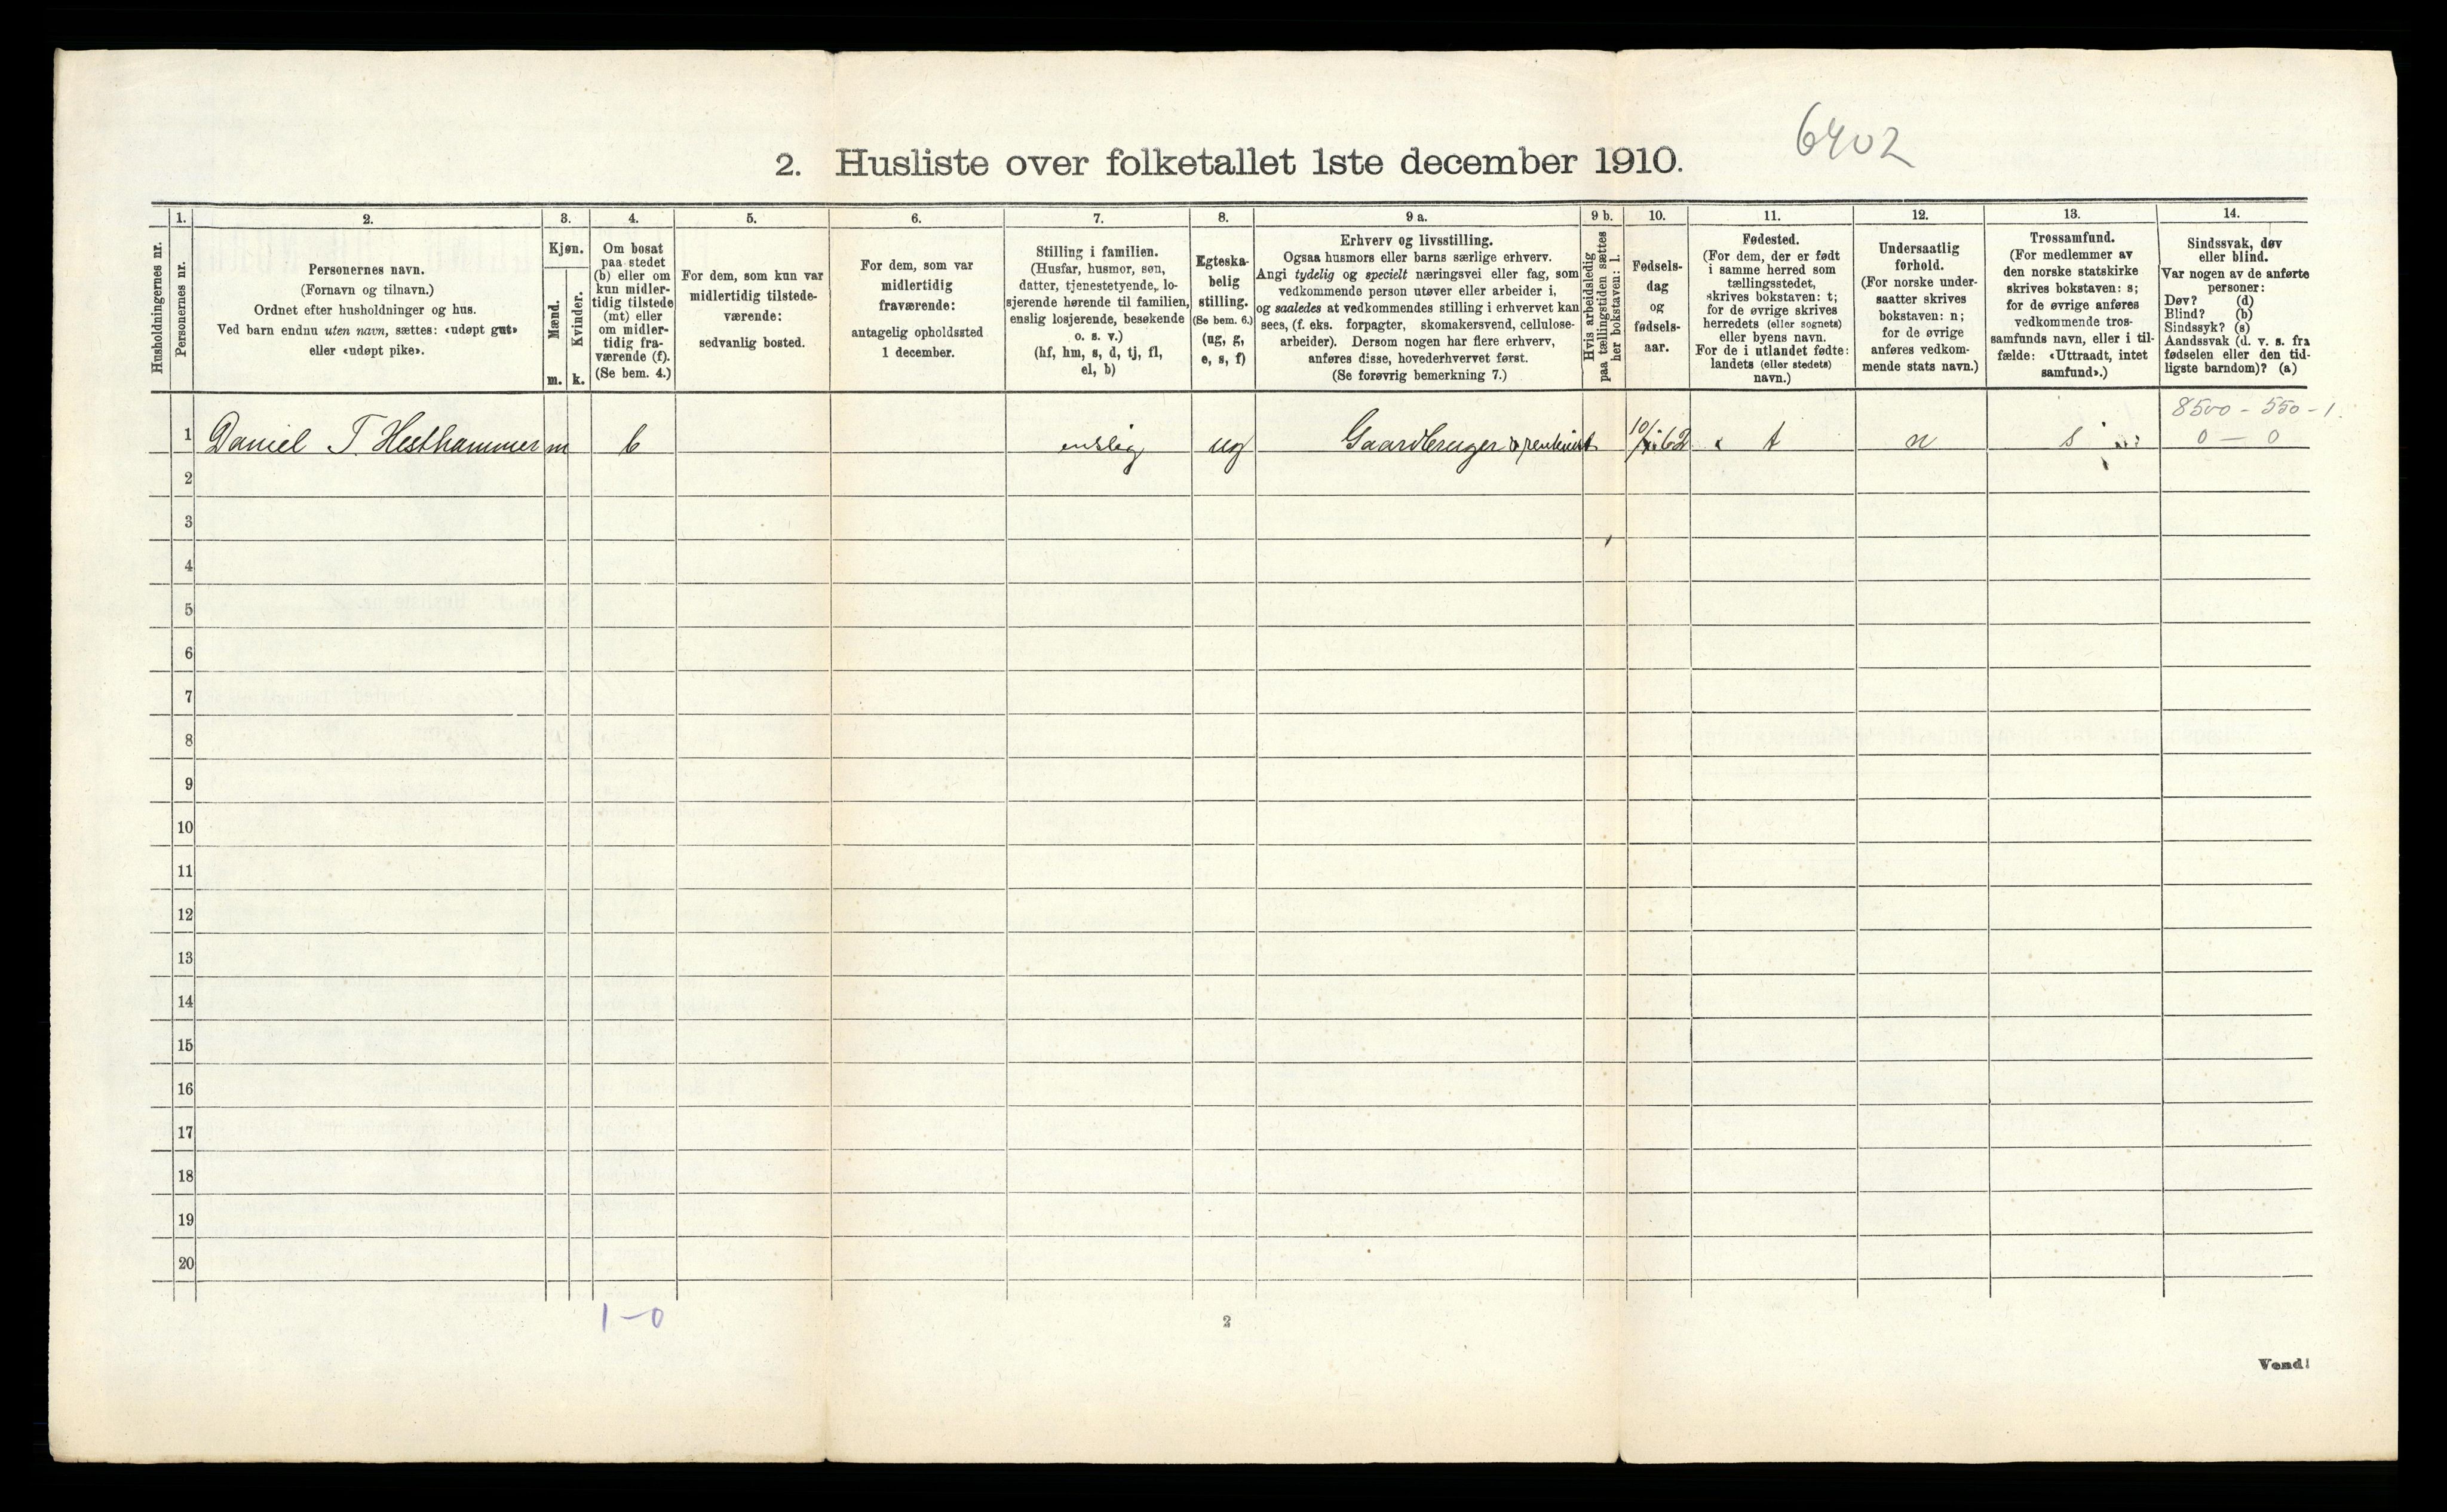 6402
2. Husliste over folketallet 1ste december 1910.
Husholdningernes nr.
1.
Personernes nr.
2.
Personernes navn.
(Fornavn og tilnavn.)
Ordnet efter husholdninger og hus.
Ved barn endnu uten navn, sættes: «udøpt gut»
eller «udøpt pike».
3.
Kjøn.
Mænd.
m.
Kvinder.
k.
4.
Om bosat
paa stedet
(b) eller om
kun midler-
tidig tilstede
(mt) eller
om midler-
tidig fra-
værende (f).
(Se bem. 4.)
5.
For dem, som kun var
midlertidig tilstede-
værende:
sedvanlig bosted.
6.
For dem, som var
midlertidig
fraværende:
antagelig opholdssted
1 december.
7.
Stilling i familien.
(Husfar, husmor, søn,
datter, tjenestetyende, lo-
sjerende hørende til familien,
enslig losjerende, besøkende
o. s. v.)
(hf, hm, s, d, tj, fl,
el, b)
8.
Egteska-
belig
stilling.
(Se bem. 6.)
(ug, g,
e, s, f)
9 a.
Erhverv og livsstilling.
Ogsaa husmors eller barns særlige erhverv.
Angi tydelig og specielt næringsvei eller fag, som
vedkommende person utøver eller arbeider i,
og saaledes at vedkommendes stilling i erhvervet kan
sees, (f. eks. forpagter, skomakersvend, cellulose-
arbeider). Dersom nogen har flere erhverv,
anføres disse, hovederhvervet først.
(Se forøvrig bemerkning 7.)
9 b.
Hvis arbeidsledig
paa tællingstiden sættes
her bokstaven: l.
10.
Fødsels-
dag
og
fødsels-
aar.
11.
Fødested.
(For dem, der er født
i samme herred som
tællingsstedet,
skrives bokstaven: t;
for de øvrige skrives
herredets (eller sognets)
eller byens navn.
For de i utlandet fødte:
landets (eller stedets)
navn.)
12.
Undersaatlig
forhold.
(For norske under-
saatter skrives
bokstaven: n;
for de øvrige
anføres vedkom-
mende stats navn.)
13.
Trossamfund.
(For medlemmer av
den norske statskirke
skrives bokstaven: s;
for de øvrige anføres
vedkommende tros-
samfunds navn, eller i til-
fælde: «Uttraadt, intet
samfund».)
14.
Sindssvak, døv
eller blind.
Var nogen av de anførte
personer:
Døv? (d)
Blind? (b)
Sindssyk? (s)
Aandssvak (d. v. s. fra
fødselen eller den tid-
ligste barndom)? (a)
8500 - 550 - 1.
1 Daniel T. Hesthammer m b enslig ug Gaardbruger & rentenist 62 t n s 0 — 0
2
3
4
5
6
7
8
9
10
11
12
13
14
15
16
17
18
19
20
1-0
2
Vend!